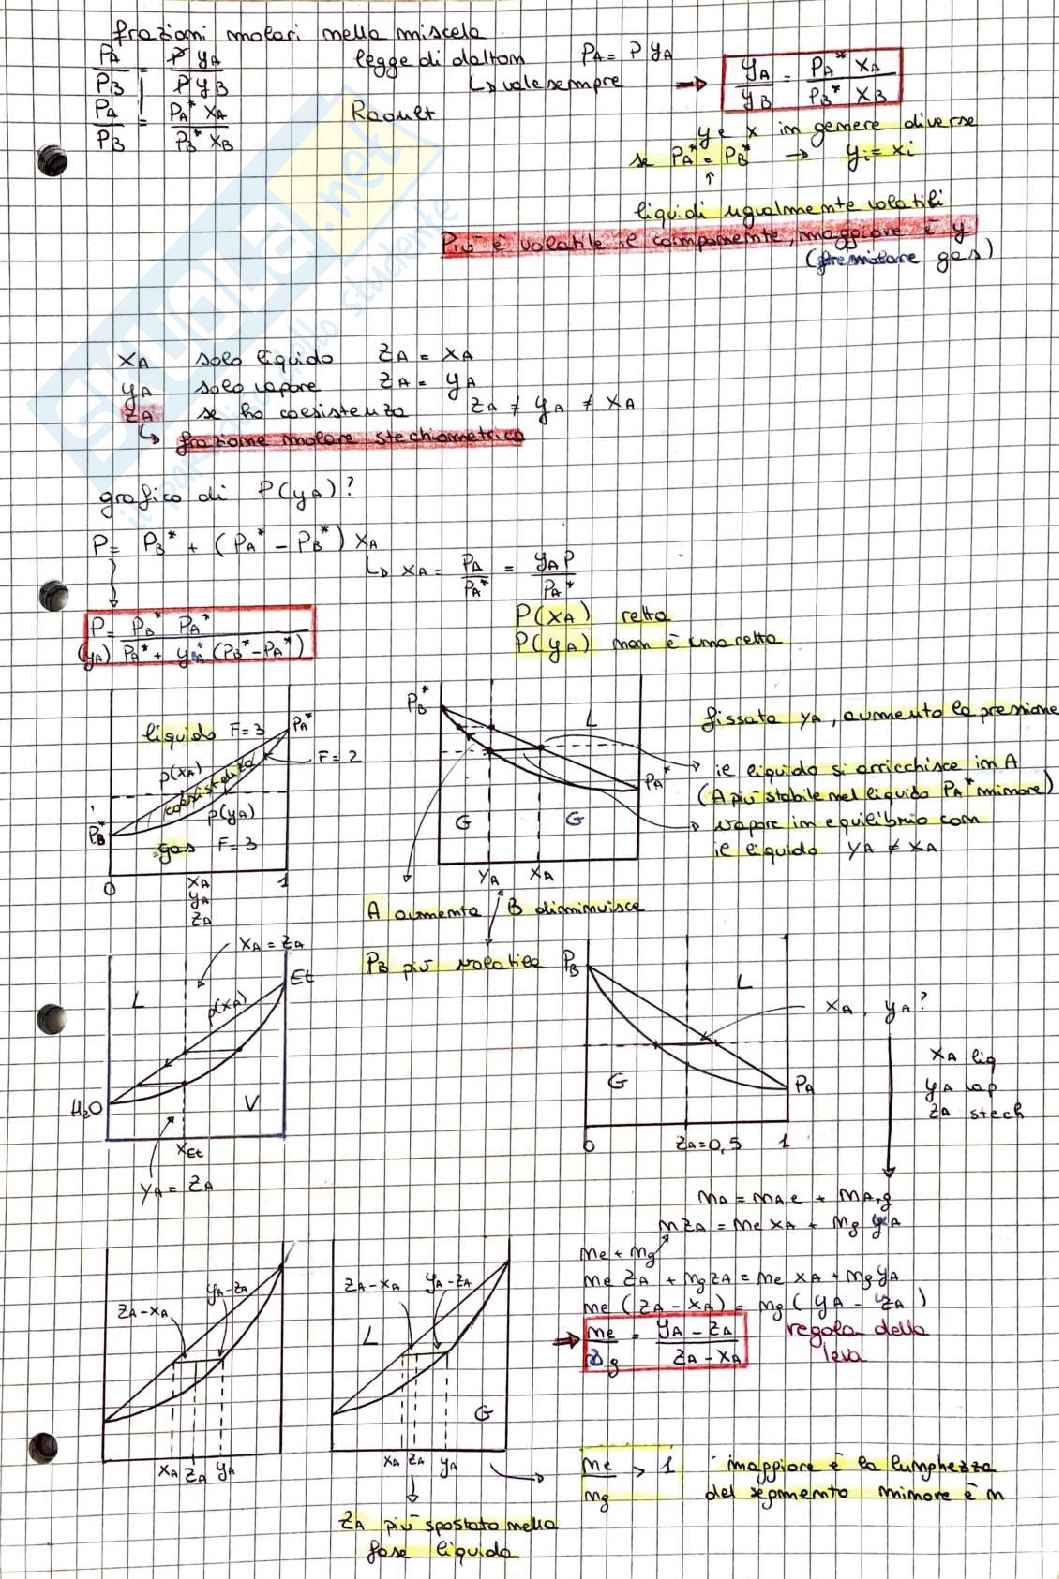 frazioni molari nella miscela
PA/PB = P yA / P yB legge di dalton PA = P yA
↳ vale sempre → yA/yB = PA* xA / PB* xB
PA/PB = PA* xA / PB* xB Raoult
y e x in genere diverse
se PA* = PB* → yi = xi
↑
liquidi ugualmente volatili
Più è volatile il componente, maggiore è y
(fremilare gas)
xA solo liquido zA = xA
yA solo vapore zA = yA
zA se ho coesistenza zA ≠ yA ≠ xA
↳ frazione molare stechiometrica
grafico di P(yA)?
P = PB* + (PA* - PB*) xA
↳ xA = PA/PA* = yA P/PA*
P(yA) = PB* PA* / PA* + yA (PB* - PA*)
P(xA) retta
P(yA) non è una retta
liquido F=3 PA*
F=2
p(xA) coesistenza
p(yA)
PB*
gas F=3
0 xA 1
yA
zA
PB* L
PA*
G G
yA xA
fissata yA, aumento la pressione
il liquido si arricchisce in A
(A più stabile nel liquido PA* minore)
vapore in equilibrio con
il liquido yA ≠ xA
A aumenta / B diminuisce
PB più volatile
xA = zA
L p(xA) Et
H2O V
xEt
yA = zA
PB L
G PA
0 zA = 0,5 1
xA, yA?
xA liq
yA vap
zA stech
nA = nA,l + nA,g
n zA = nl xA + ng yA
nl + ng
nl zA + ng zA = nl xA + ng yA
nl (zA - xA) = ng (yA - zA)
→ nl/ng = yA - zA / zA - xA regola della
leva
zA - xA yA - zA
xA zA yA
zA - xA yA - zA
L
G
xA zA yA
zA più spostato nella
fase liquida
nl/ng > 1 maggiore è la lunghezza
del segmento minore è n